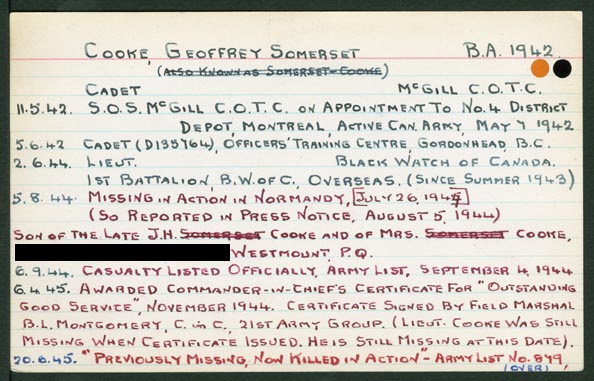 COOKE, GEOFFREY SOMERSET B.A. 1942.
(ALSO KNOWN AS SOMERSET-COOKE)
CADET McGILL C.O.T.C.
11.5.42. S.O.S. McGILL C.O.T.C. ON APPOINTMENT TO No. 4 DISTRICT
DEPOT, MONTREAL, ACTIVE CAN. ARMY, MAY 7 1942
5.6.42 CADET (D135764), OFFICERS' TRAINING CENTRE, GORDONHEAD, B.C.
2.6.44. LIEUT. BLACK WATCH OF CANADA.
1ST BATTALION, B.W. OF C., OVERSEAS. (SINCE SUMMER 1943)
5.8.44. MISSING IN ACTION IN NORMANDY, JULY 26, 1944
(SO REPORTED IN PRESS NOTICE, AUGUST 5, 1944)
SON OF THE LATE J.H. SOMERSET COOKE AND OF MRS. SOMERSET COOKE,
WESTMOUNT, P.Q.
6.9.44. CASUALTY LISTED OFFICIALLY, ARMY LIST, SEPTEMBER 4, 1944
6.4.45. AWARDED COMMANDER-IN-CHIEF'S CERTIFICATE FOR "OUTSTANDING
GOOD SERVICE", NOVEMBER 1944. CERTIFICATE SIGNED BY FIELD MARSHAL
B.L. MONTGOMERY, C. in C., 21ST ARMY GROUP. (LIEUT. COOKE WAS STILL
MISSING WHEN CERTIFICATE ISSUED. HE IS STILL MISSING AT THIS DATE).
20.6.45. "PREVIOUSLY MISSING, NOW KILLED IN ACTION" - ARMY LIST No. 879,
(OVER)